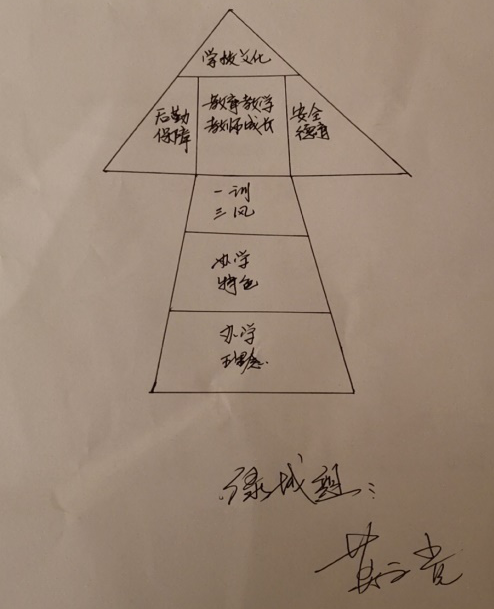 学校文化
后勤
保障
教育教学
教师成长
安全
德育
一训
三风
办学
特色
办学
理念